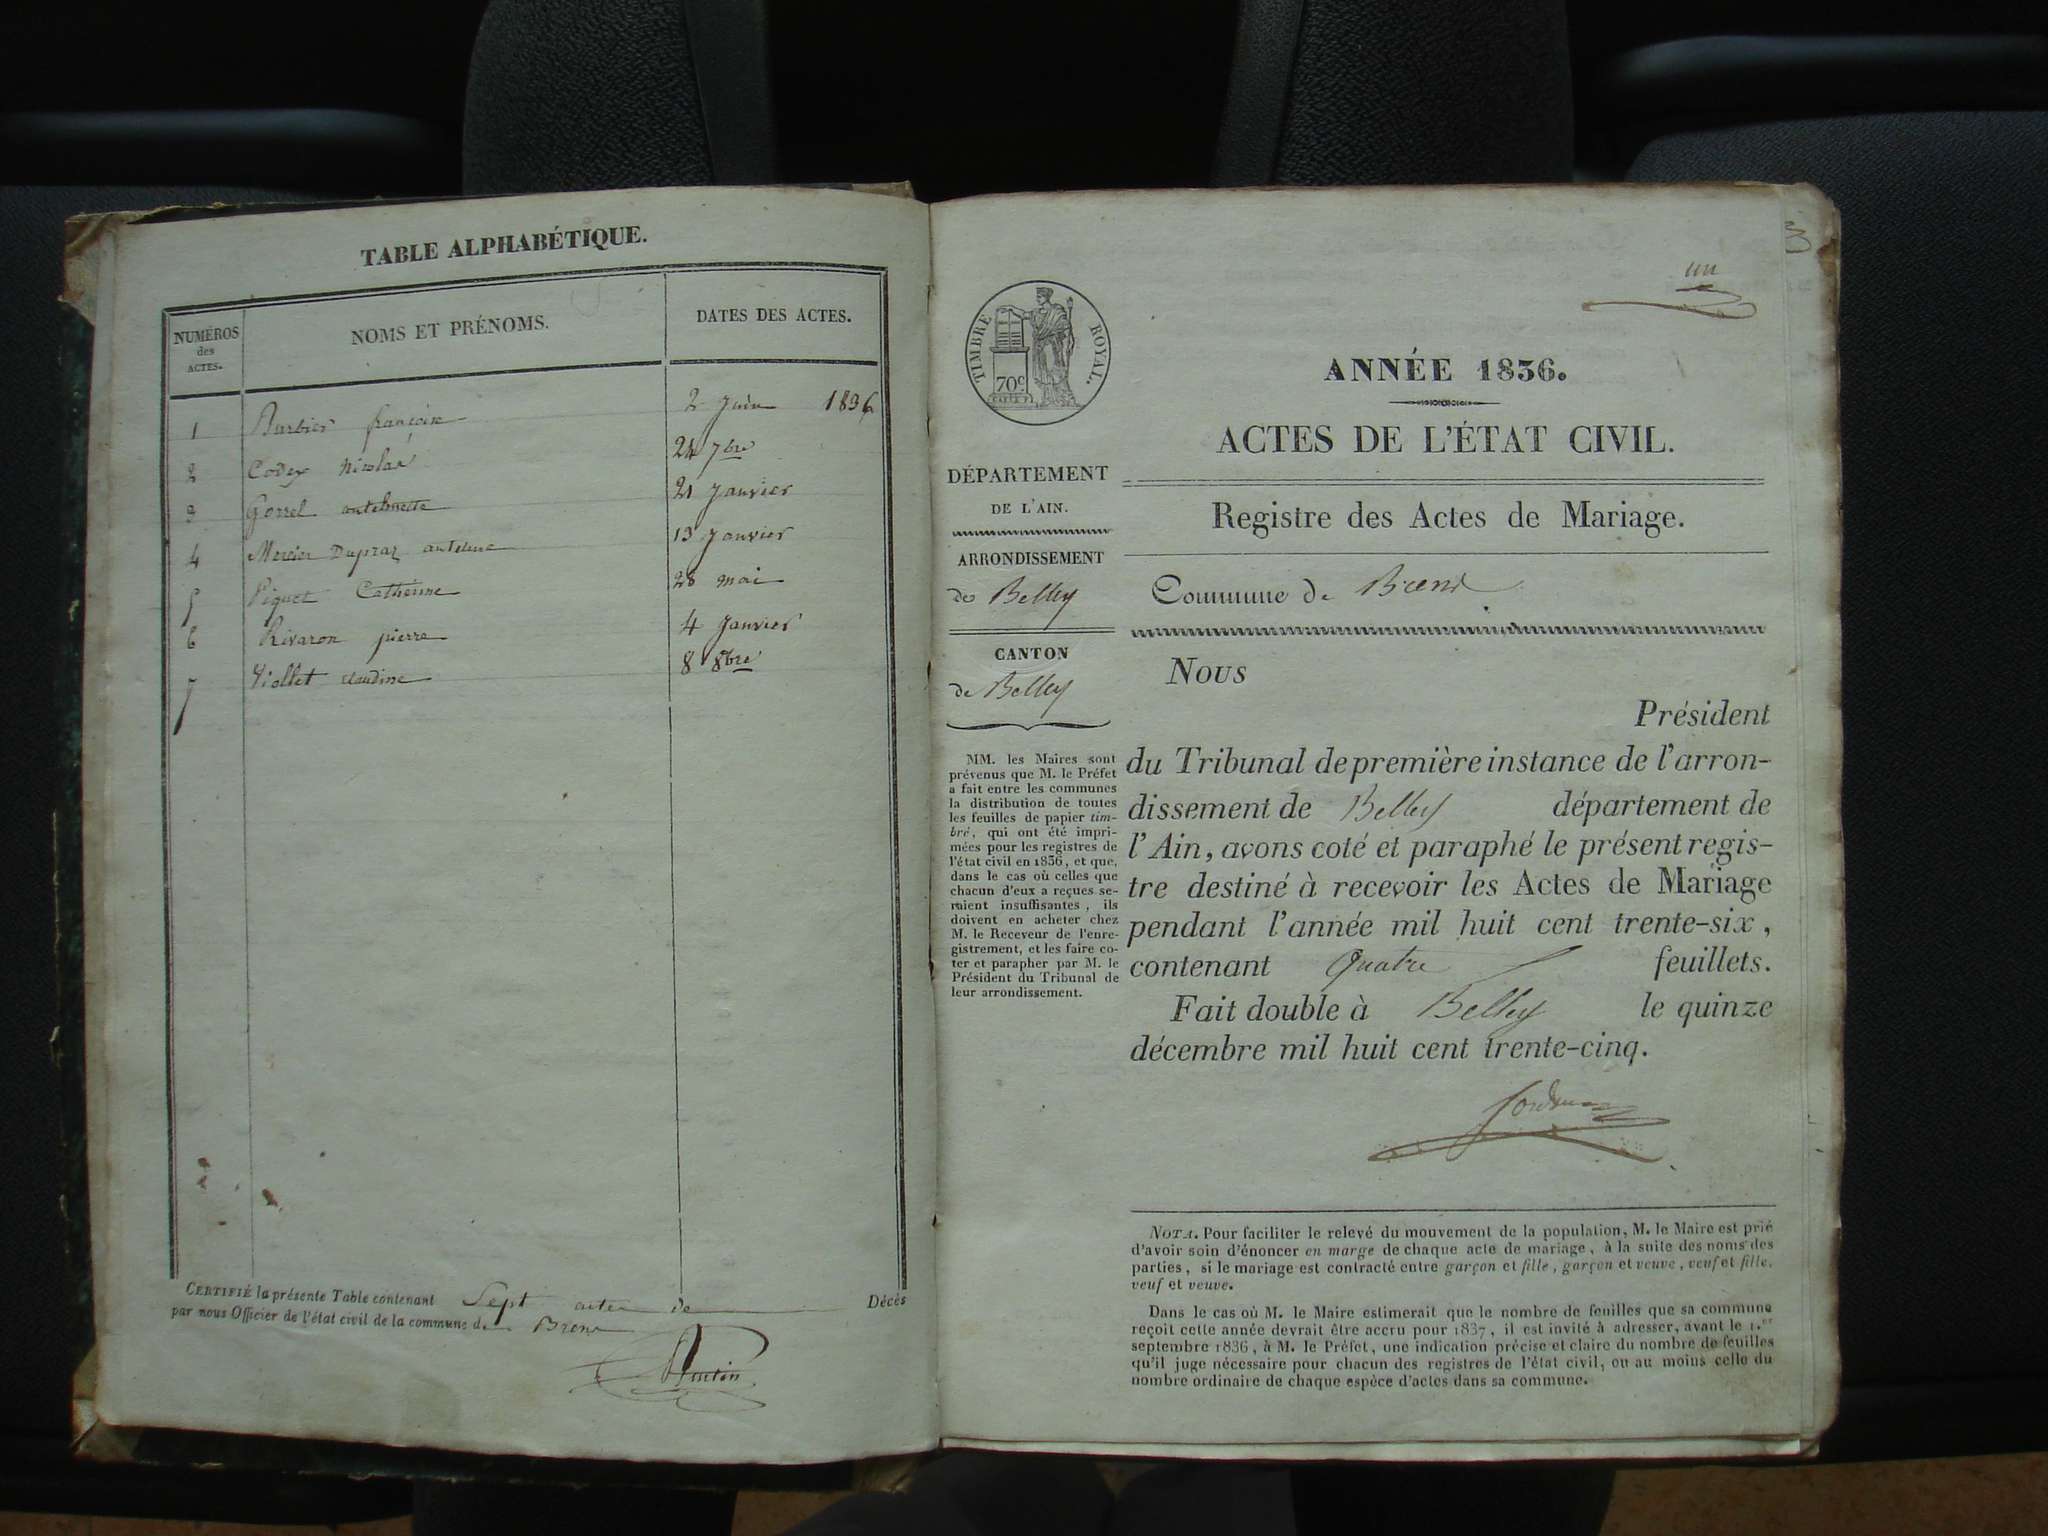 TABLE ALPHABÉTIQUE.
NUMÉROS des ACTES. NOMS ET PRÉNOMS. DATES DES ACTES.
1 Barbier françoise 2 Juin 1836
2 Codex Nicolas 24 7bre
3 Gorrel antelmette 21 Janvier
4 Mercier Dupraz antelme 13 Janvier
5 Piquet Catherine 28 mai
6 Rivaron pierre 4 Janvier
7 Viollet claudine 8 8bre
CERTIFIÉ la présente Table contenant Sept actes de Décès
par nous Officier de l'état civil de la commune de Brens
un
TIMBRE ROYAL.
70c
DÉPARTEMENT
DE L'AIN.
ARRONDISSEMENT
de Belley
CANTON
de Belley
MM. les Maires sont
prévenus que M. le Préfet
a fait entre les communes
la distribution de toutes
les feuilles de papier tim-
bré, qui ont été impri-
mées pour les registres de
l'état civil en 1836, et que,
dans le cas où celles que
chacun d'eux a reçues se-
raient insuffisantes, ils
doivent en acheter chez
M. le Receveur de l'enre-
gistrement, et les faire co-
ter et parapher par M. le
Président du Tribunal de
leur arrondissement.
ANNÉE 1836.
ACTES DE L'ÉTAT CIVIL.
Registre des Actes de Mariage.
Commune de Brens
Nous
Président
du Tribunal de première instance de l'arron-
dissement de Belley département de
l'Ain, avons coté et paraphé le présent regis-
tre destiné à recevoir les Actes de Mariage
pendant l'année mil huit cent trente-six,
contenant quatre feuillets.
Fait double à Belley le quinze
décembre mil huit cent trente-cinq.
NOTA. Pour faciliter le relevé du mouvement de la population, M. le Maire est prié
d'avoir soin d'énoncer en marge de chaque acte de mariage, à la suite des noms des
parties, si le mariage est contracté entre garçon et fille, garçon et veuve, veuf et fille,
veuf et veuve.
Dans le cas où M. le Maire estimerait que le nombre de feuilles que sa commune
reçoit cette année devrait être accru pour 1837, il est invité à adresser, avant le 1.er
septembre 1836, à M. le Préfet, une indication précise et claire du nombre de feuilles
qu'il juge nécessaire pour chacun des registres de l'état civil, ou au moins celle du
nombre ordinaire de chaque espèce d'actes dans sa commune.